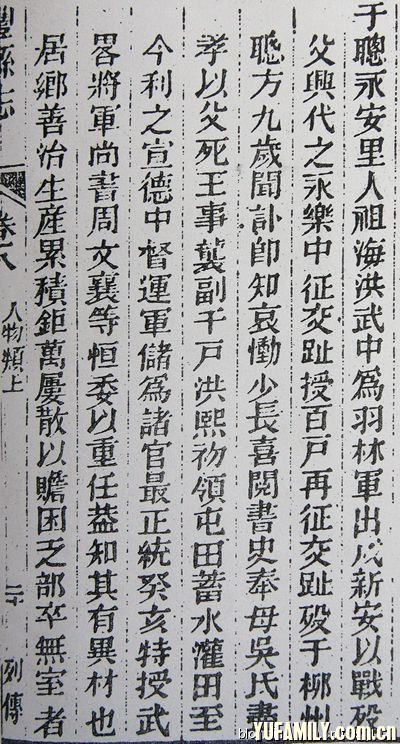 于聰永安里人祖海洪武中為羽林軍出戍新安以戰殁
父興代之永樂中征交趾授百戶再征交趾殁于柳州
聰方九歲聞訃即知哀慟少長喜閱書史奉母吳氏盡
孝以父死王事襲副千戶洪熙初領屯田蓄水灌田至
今利之宣德中督運軍儲為諸官最正統癸亥特授武
畧將軍尚書周文襄等恒委以重任葢知其有異材也
居鄉善治生產累積鉅萬屢散以贍困乏部卒無室者
豐縣志
卷八
人物類上
二十
列傳
YUFAMILY.com.cn